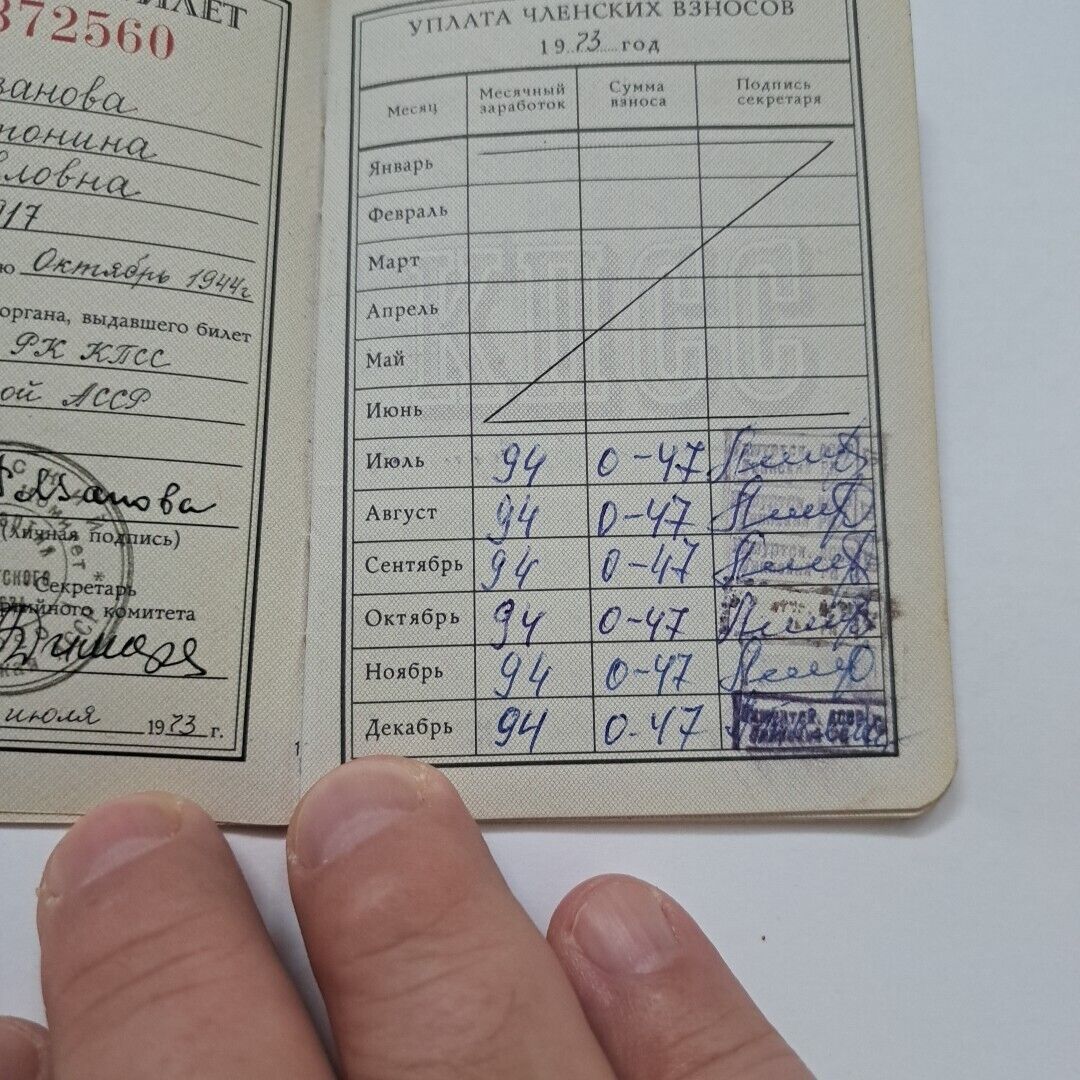 БИЛЕТ
372560
занова
тонина
ловна
917
ю Октябрь 1944г
органа, выдавшего билет
РК КПСС
ой АССР
(личная подпись)
Секретарь
комитета
июля 1973 г.
УПЛАТА ЧЛЕНСКИХ ВЗНОСОВ
1973 год
Месяц Месячный заработок Сумма взноса Подпись секретаря
Январь
Февраль
Март
Апрель
Май
Июнь
Июль 94 0-47
Август 94 0-47
Сентябрь 94 0-47
Октябрь 94 0-47
Ноябрь 94 0-47
Декабрь 94 0-47
КПСС